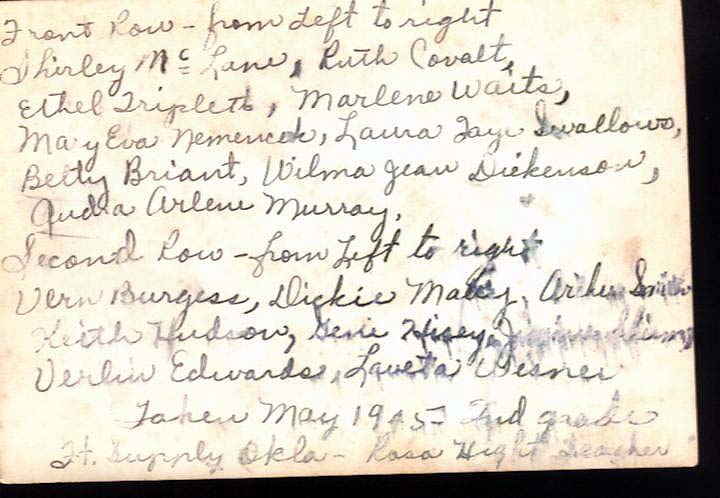 Front Row - from Left to right
Shirley Mc Lane, Ruth Covalt,
Ethel Triplett, Marlene Waits,
Mary Eva Nemencek, Laura Faye Swallows,
Betty Briant, Wilma Jean Dickenson,
Audra Arlene Murray.
Second Row - from Left to right
Vern Burgess, Dickie Maley, Smith
Keith Hudson, Gene Hisey,
Verlin Edwards, Laveta Wisner
Taken May 1945 2nd grade
Ft. Supply Okla - Rosa Hight Teacher